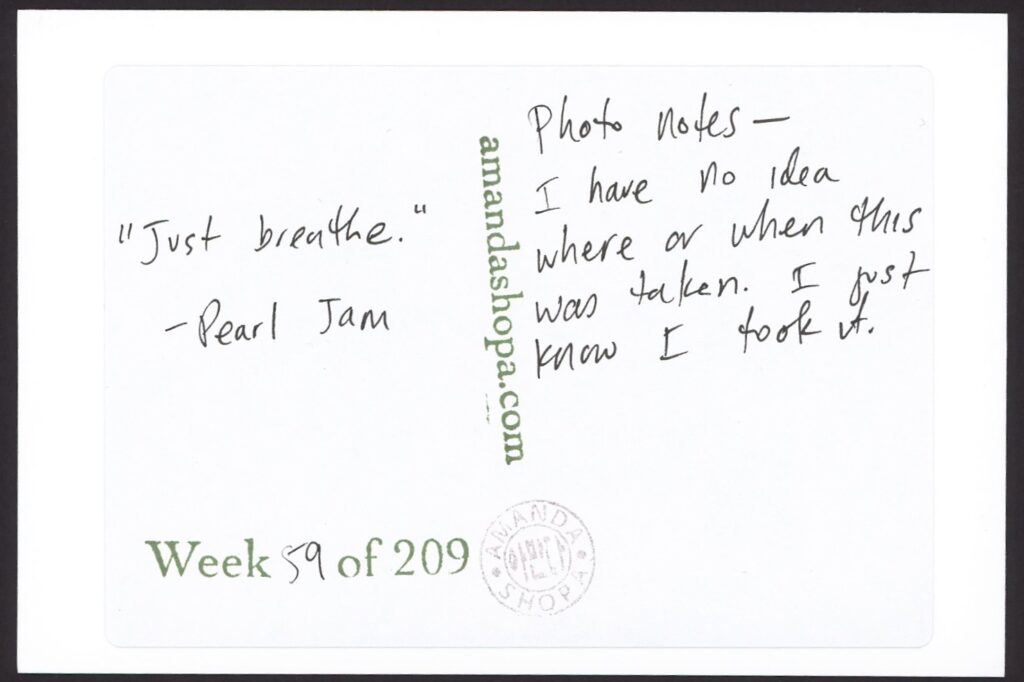 "Just breathe."
- Pearl Jam
amandashopa.com
Photo notes —
I have no idea
where or when this
was taken. I just
know I took it.
Week 59 of 209
AMANDA
SHOPA